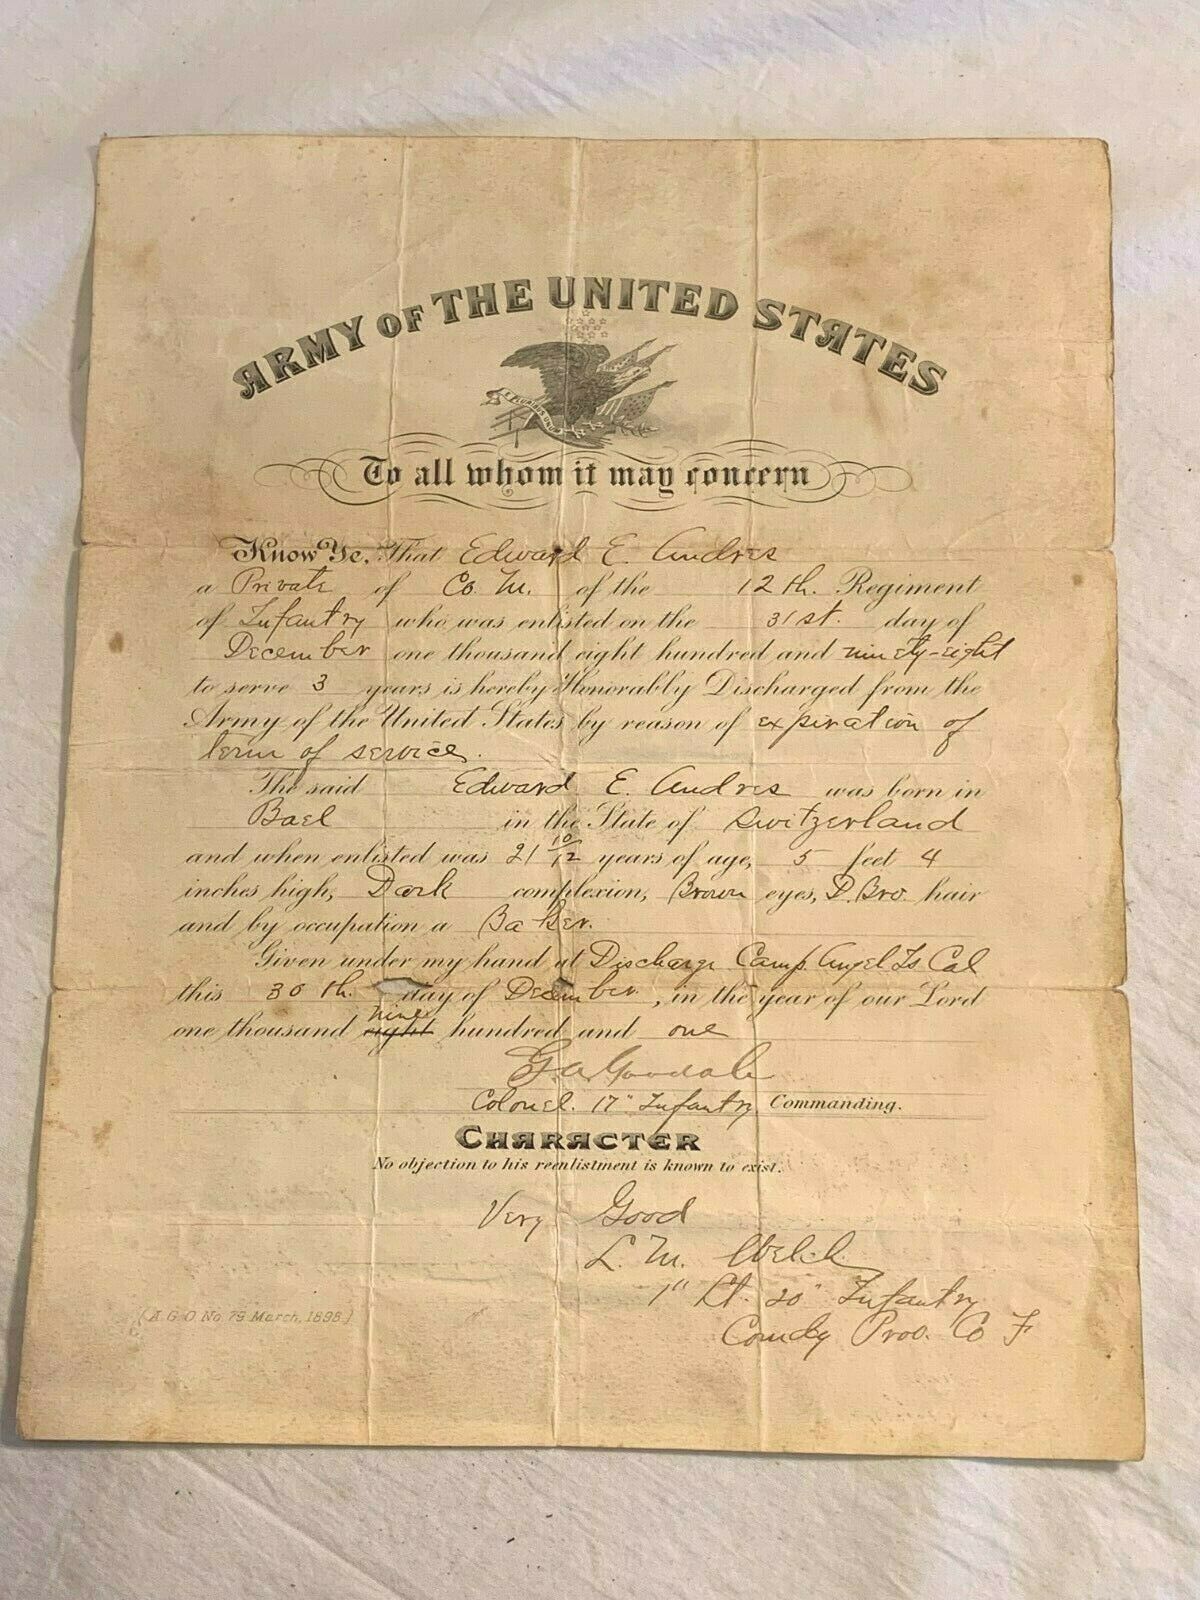 ARMY OF THE UNITED STATES
E PLURIBUS UNUM
To all whom it may concern
Know Ye, That Edward E. Andres
a Private of Co. M. of the 12th. Regiment
of Infantry who was enlisted on the 31st. day of
December one thousand eight hundred and ninety-eight
to serve 3 years is hereby Honorably Discharged from the
Army of the United States by reason of expiration of
term of service.
The said Edward E. Andres was born in
Basel in the State of Switzerland
and when enlisted was 21 10/12 years of age, 5 feet 4
inches high, Dark complexion, Brown eyes, D. Bro. hair
and by occupation a Baker.
Given under my hand at Discharge Camp, Angel Is Cal
this 30th. day of December, in the year of our Lord
one thousand eight nine hundred and one
G. A. Goodale
Colonel. 17" Infantry Commanding.
CHARACTER
No objection to his reenlistment is known to exist.
Very Good
L. M. Welch
1" Lt. 20" Infantry
Comdg Prov. Co F
(A.G.O. No 79 March, 1898.)